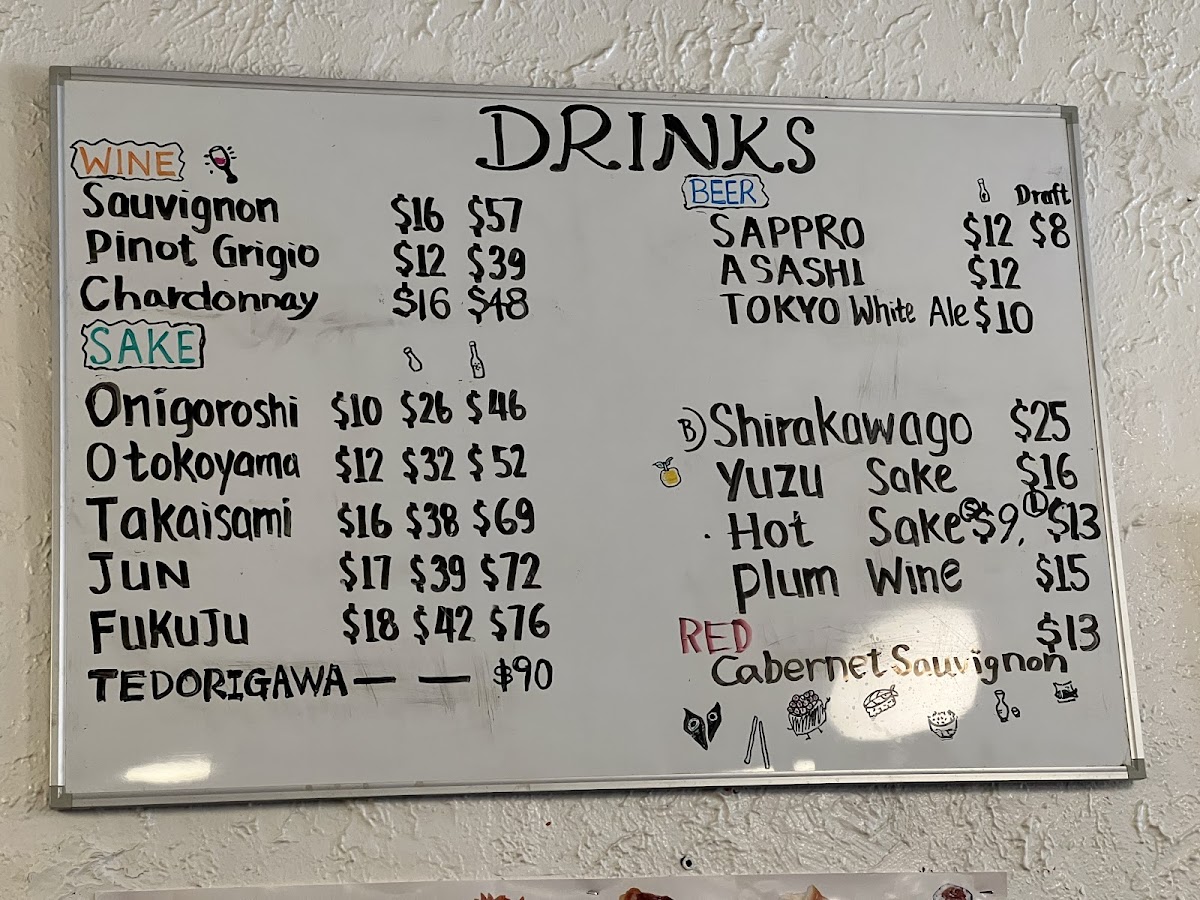 DRINKS
WINE
Sauvignon $16 $57
Pinot Grigio $12 $39
Chardonnay $16 $48
SAKE
Onigoroshi $10 $26 $46
Otokoyama $12 $32 $52
Takaisami $16 $38 $69
JUN $17 $39 $72
FUKUJU $18 $42 $76
TEDORIGAWA — — $90
BEER Draft
SAPPRO $12 $8
ASASHI $12
TOKYO White Ale $10
B) Shirakawago $25
Yuzu Sake $16
· Hot Sake S $9, L $13
Plum Wine $15
RED $13
Cabernet Sauvignon